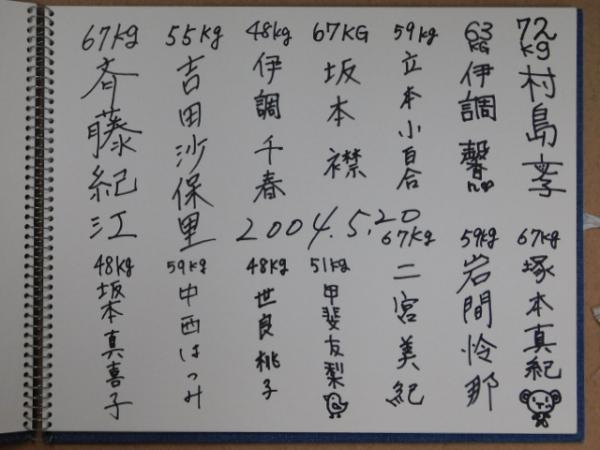 72kg 村島文子
63KG 伊調馨
59kg 立本小百合
67KG 坂本襟
48kg 伊調千春
55kg 吉田沙保里
67kg 斉藤紀江
2004.5.20
67kg 塚本真紀
59kg 岩間怜那
67kg 二宮美紀
51kg 甲斐友梨
48kg 世良桃子
59kg 中西はつみ
48kg 坂本真喜子